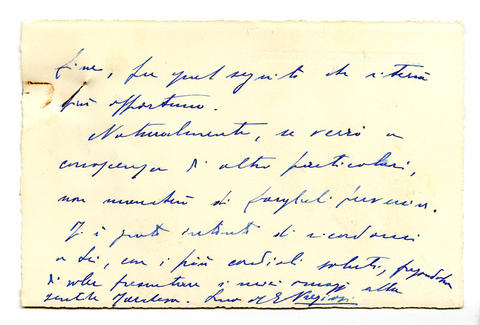 fine, per quel seguito che riterrà
più opportuno.
Naturalmente, se verrò a
conoscenza di altri particolari,
non mancherò di farglieli pervenire.
Mi è grato intanto di ricordarmi
a Lei, con i più cordiali saluti, pregandola
di voler presentare i miei omaggi alla
gentile Suo